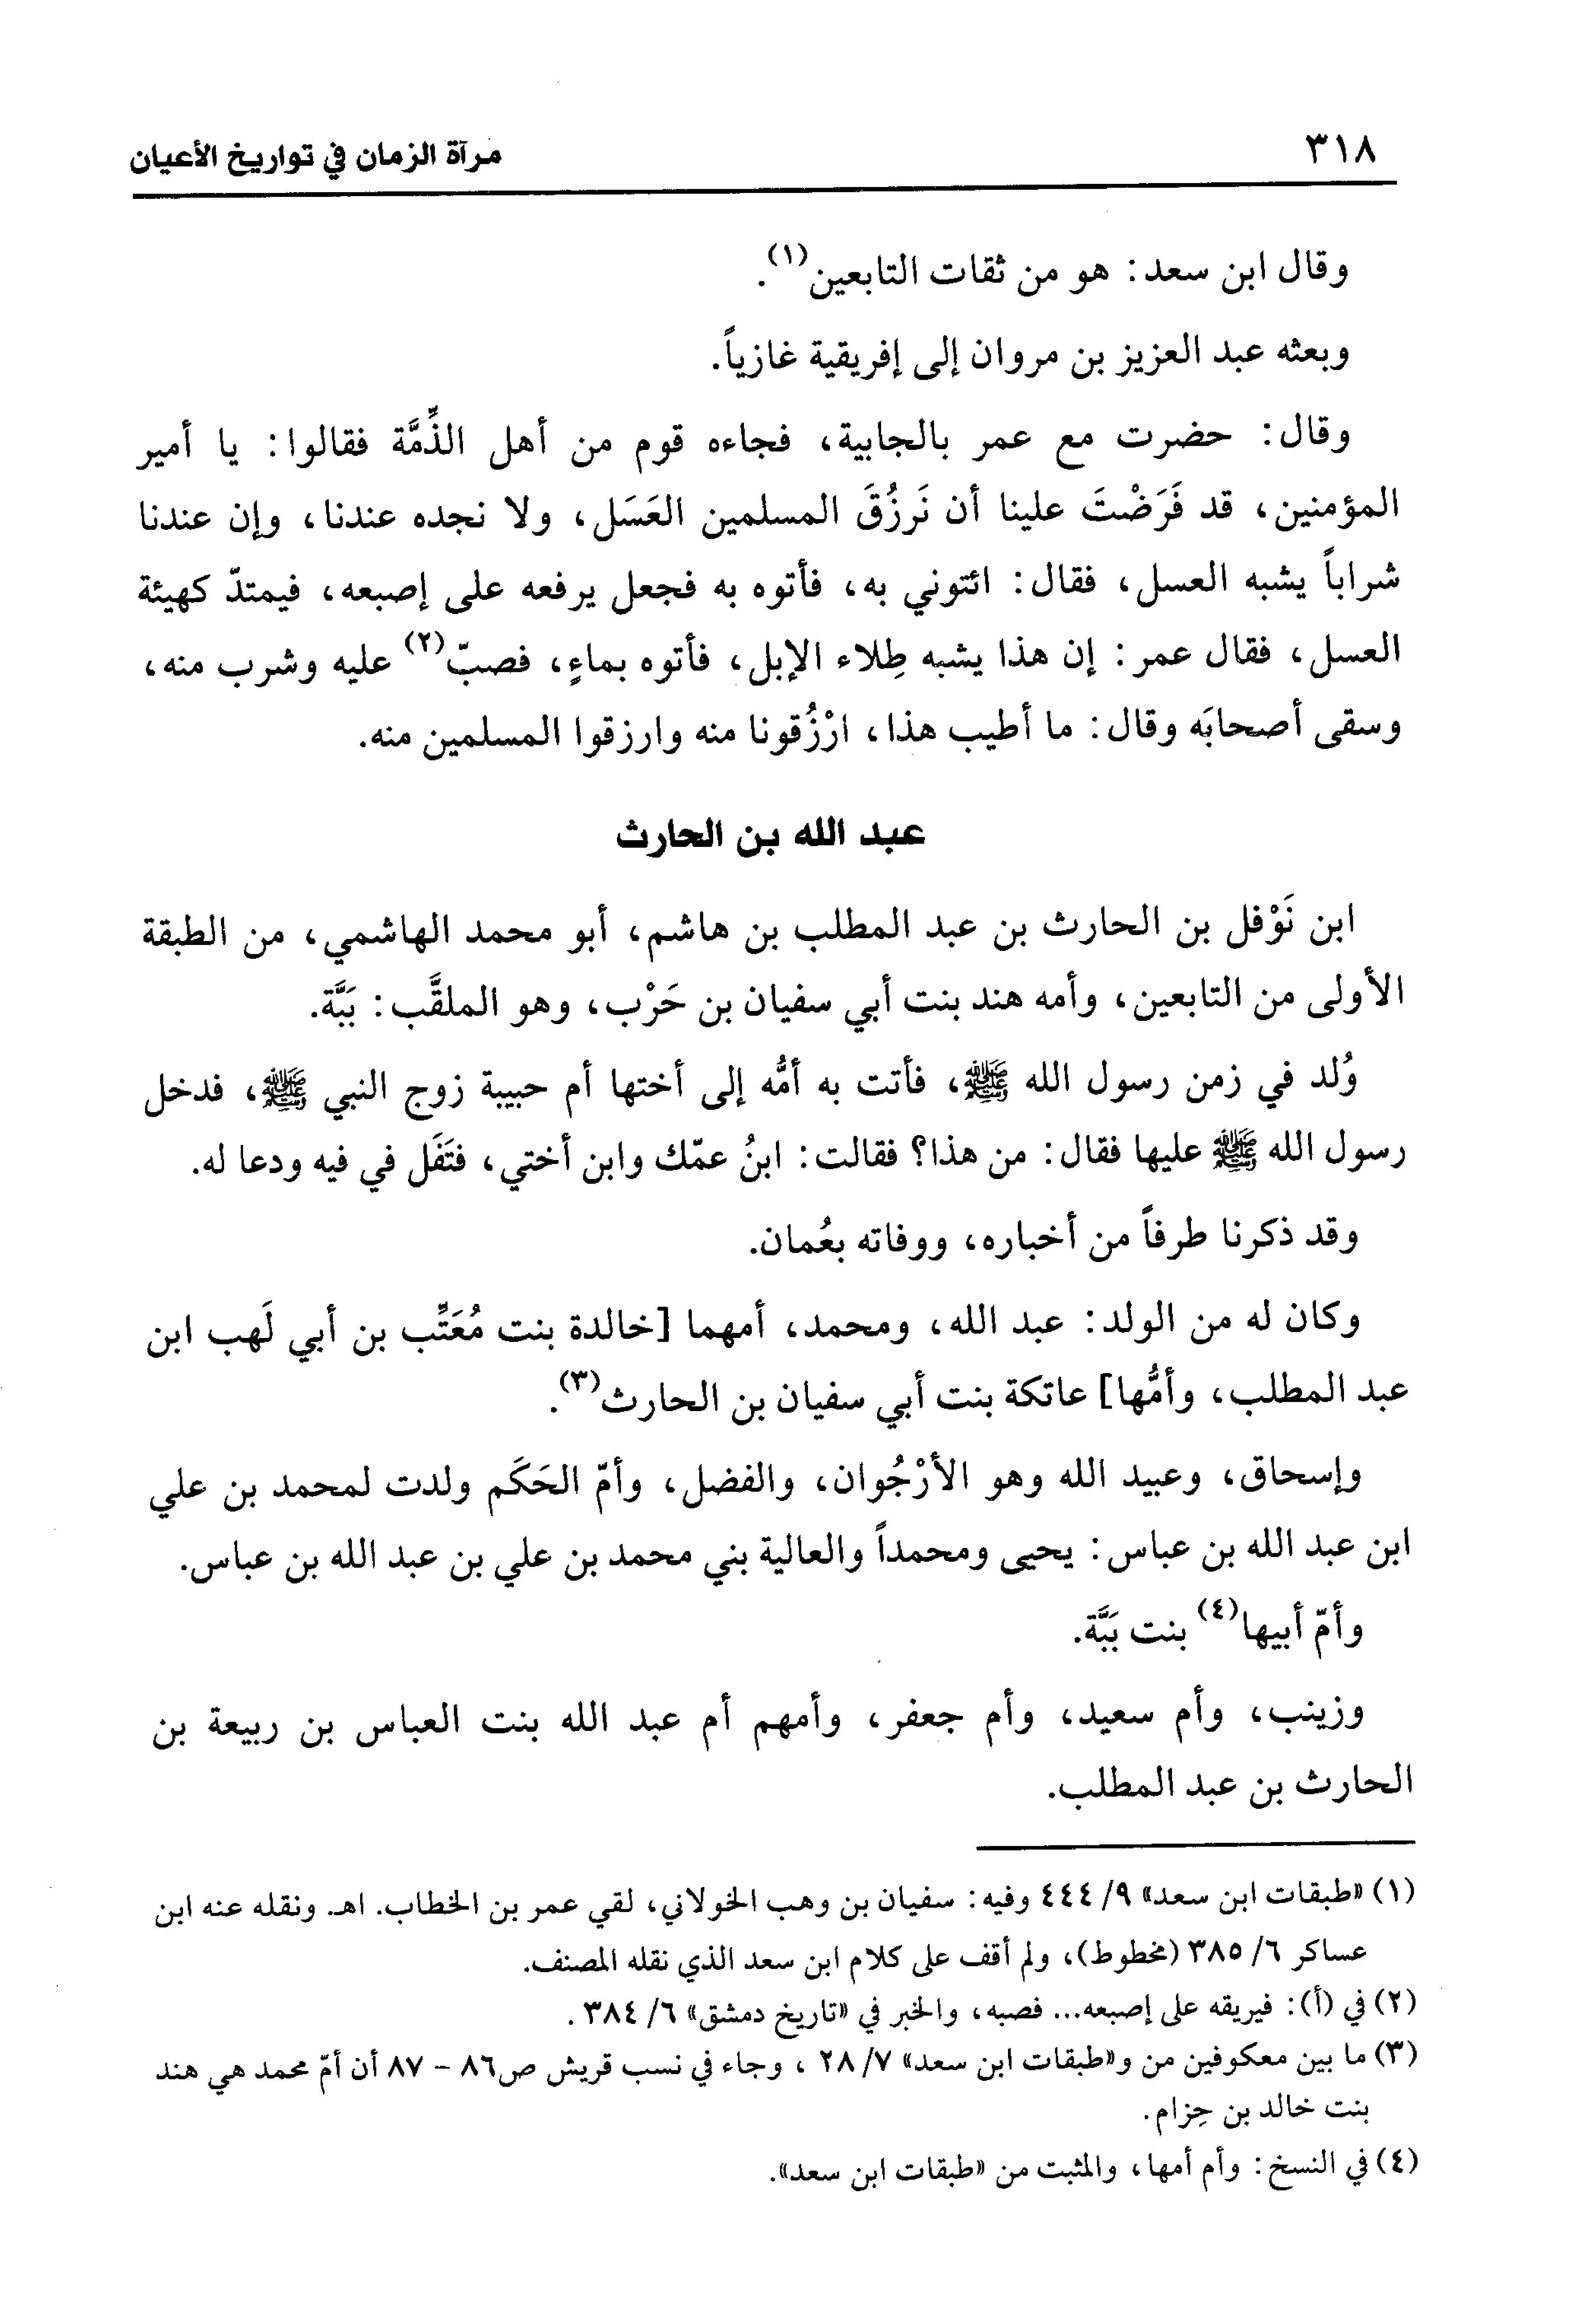 ٣١٨
مرآة الزمان في تواريخ الأعيان
وقال ابن سعد: هو من ثقات التابعين(١).
وبعثه عبد العزيز بن مروان إلى إفريقية غازياً.
وقال: حضرت مع عمر بالجابية، فجاءه قوم من أهل الذِّمَّة فقالوا: يا أمير
المؤمنين، قد فَرَضْتَ علينا أن نَرزُقَ المسلمين العَسَل، ولا نجده عندنا، وإن عندنا
شراباً يشبه العسل، فقال: ائتوني به، فأتوه به فجعل يرفعه على إصبعه، فيمتدّ كهيئة
العسل، فقال عمر: إن هذا يشبه طِلاء الإبل، فأتوه بماءٍ، فصبّ(٢) عليه وشرب منه،
وسقى أصحابَه وقال: ما أطيب هذا، ارْزُقونا منه وارزقوا المسلمين منه.
عبد الله بن الحارث
ابن نَوْفل بن الحارث بن عبد المطلب بن هاشم، أبو محمد الهاشمي، من الطبقة
الأولى من التابعين، وأمه هند بنت أبي سفيان بن حَرْب، وهو الملقَّب: بَبَّة.
وُلد في زمن رسول الله ﷺ، فأتت به أمُّه إلى أختها أم حبيبة زوج النبي ﷺ، فدخل
رسول الله ﷺ عليها فقال: من هذا؟ فقالت: ابنُ عمّك وابن أختي، فتَفَل في فيه ودعا له.
وقد ذكرنا طرفاً من أخباره، ووفاته بعُمان.
وكان له من الولد: عبد الله، ومحمد، أمهما [خالدة بنت مُعَتِّب بن أبي لَهب ابن
عبد المطلب، وأمُّها] عاتكة بنت أبي سفيان بن الحارث(٣).
وإسحاق، وعبيد الله وهو الأرْجُوان، والفضل، وأمّ الحَكَم ولدت لمحمد بن علي
ابن عبد الله بن عباس: يحيى ومحمداً والعالية بني محمد بن علي بن عبد الله بن عباس.
وأمّ أبيها(٤) بنت بَبَّة.
وزينب، وأم سعيد، وأم جعفر، وأمهم أم عبد الله بنت العباس بن ربيعة بن
الحارث بن عبد المطلب.
(١) «طبقات ابن سعد» ٩/ ٤٤٤ وفيه: سفيان بن وهب الخولاني، لقي عمر بن الخطاب. اهـ. ونقله عنه ابن
عساكر ٦/ ٣٨٥ (مخطوط)، ولم أقف على كلام ابن سعد الذي نقله المصنف.
(٢) في (أ): فيريقه على إصبعه... فصبه، والخبر في «تاريخ دمشق» ٦/ ٣٨٤.
(٣) ما بين معكوفين من و«طبقات ابن سعد» ٧/ ٢٨ ، وجاء في نسب قريش ص٨٦ - ٨٧ أن أمّ محمد هي هند
بنت خالد بن حِزام.
(٤) في النسخ: وأم أمها، والمثبت من «طبقات ابن سعد».